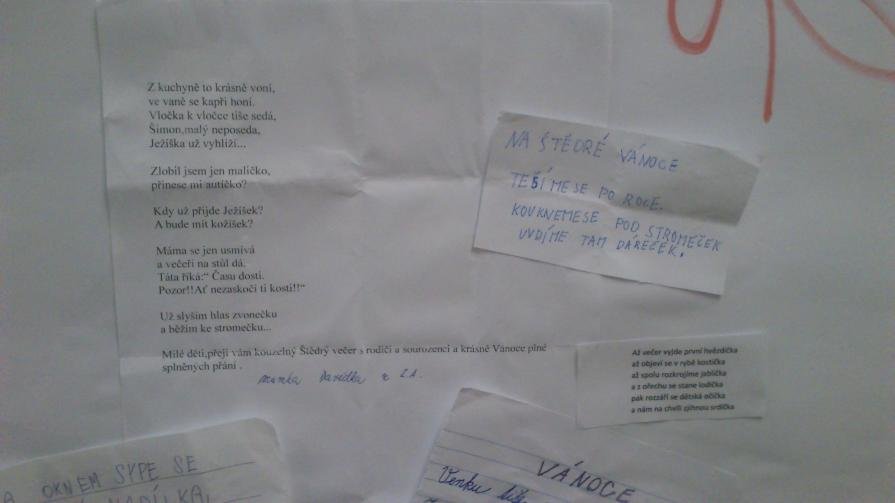 Z kuchyně to krásně voní,
ve vaně se kapři honí.
Vločka k vločce tiše sedá,
Šimon,malý neposeda,
Ježíška už vyhlíží...
Zlobil jsem jen maličko,
přinese mi autíčko?
Kdy už přijde Ježíšek?
A bude mít kožíšek?
Máma se jen usmívá
a večeři na stůl dá.
Táta říká:“ Času dosti.
Pozor!!Ať nezaskočí ti kosti!!“
Už slyším hlas zvonečku
a běžím ke stromečku...
Milé děti,přeji vám kouzelný Štědrý večer s rodiči a sourozenci a krásné Vánoce plné
splněných přání .
mamka Davídka z 2.A
NA ŠTĚDRÉ VÁNOCE
TEŠÍME SE PO ROCE.
KOUKNEMESE POD STROMEČEK
UVDÍME TAM DÁREČEK.
Až večer vyjde první hvězdička
až objeví se v rybě kostička
až spolu rozkrojíme jablíčka
a z ořechu se stane lodička
pak rozzáří se dětská očička
a nám na chvíli zjihnou srdíčka
OKNEM SYPE SE
VÁNOCE
Venku